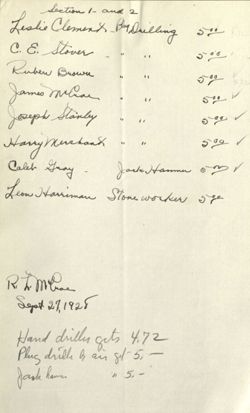 Section 1- and 2
Leslie Clement Drilling 5.00
C. E. Stover " " 5.00
Ruben Brown " " 5.00
James McCrae " " 5.00 ✓
Joseph Stanley " " 5.00 ✓
Harry Merchant " " 5.00 ✓
Caleb Gray Jack Hammer 5.00 ✓
Leon Harriman Stone worker 5.00
Sept 27, 1928
Hand drills gets 4.72
Plug drills by air get 5.—
Jack " 5.—